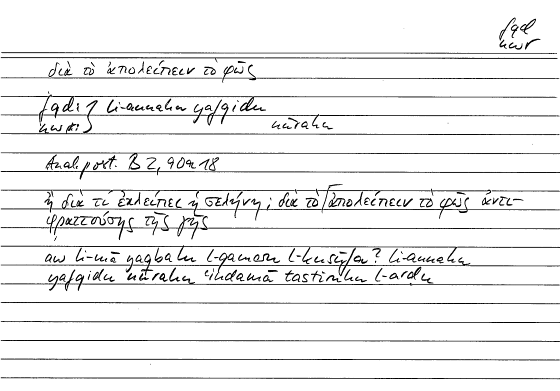 fqd
nwr
διὰ τὸ ἀπολείπειν τὸ φῶς
fqd: } li-annahu yafqidu
nwr: } nūrahu
Anal. post. B 2, 90a18
ἢ διὰ τί ἐκλείπει ἡ σελήνη; διὰ τὸ ἀπολείπειν τὸ φῶς ἀντι-
φραττούσης τῆς γῆς
aw li-mā yaqbalu l-qamaru l-kusūfa? li-annahu
yafqidu nūrahu ʿindamā tasturuhu l-arḍu